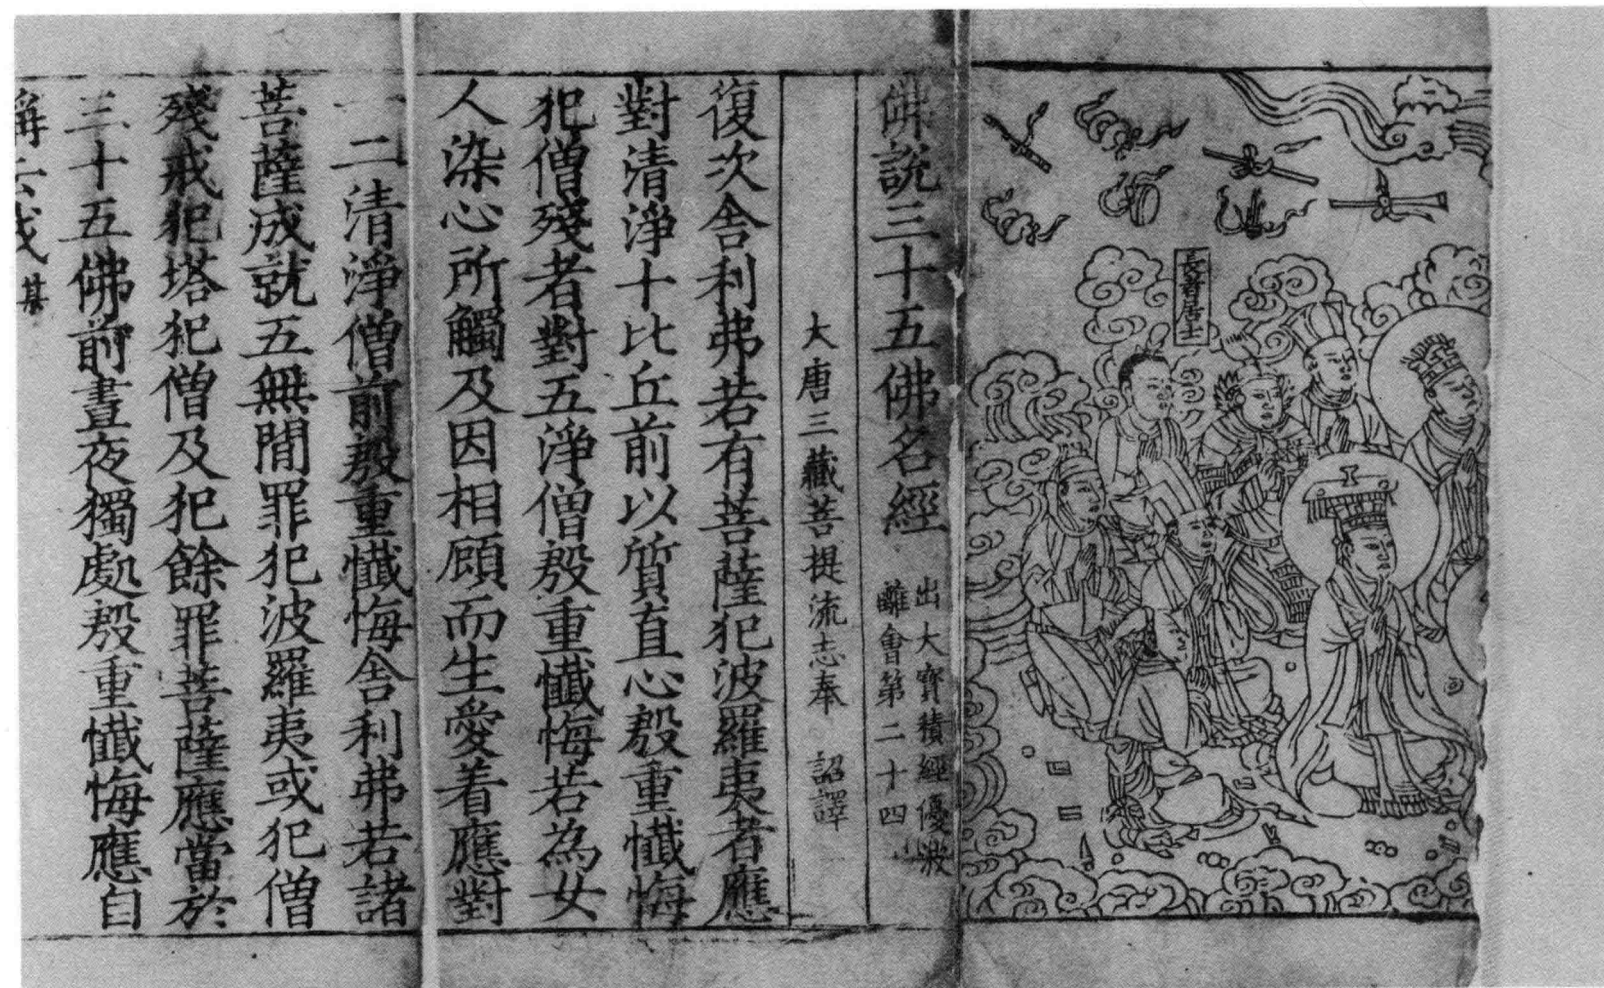 長者居士
佛說三十五佛名經
出大寶積經優波
離會第二十四
大唐三藏菩提流志奉 詔譯
復次舍利弗若有菩薩犯波羅夷者應
對清淨十比丘前以質直心殷重懺悔
犯僧殘者對五淨僧殷重懺悔若為女
人染心所觸及因相顧而生愛着應對
一二清淨僧前殷重懺悔舍利弗若諸
菩薩成就五無間罪犯波羅夷或犯僧
殘戒犯塔犯僧及犯餘罪菩薩應當於
三十五佛前晝夜獨處殷重懺悔應自